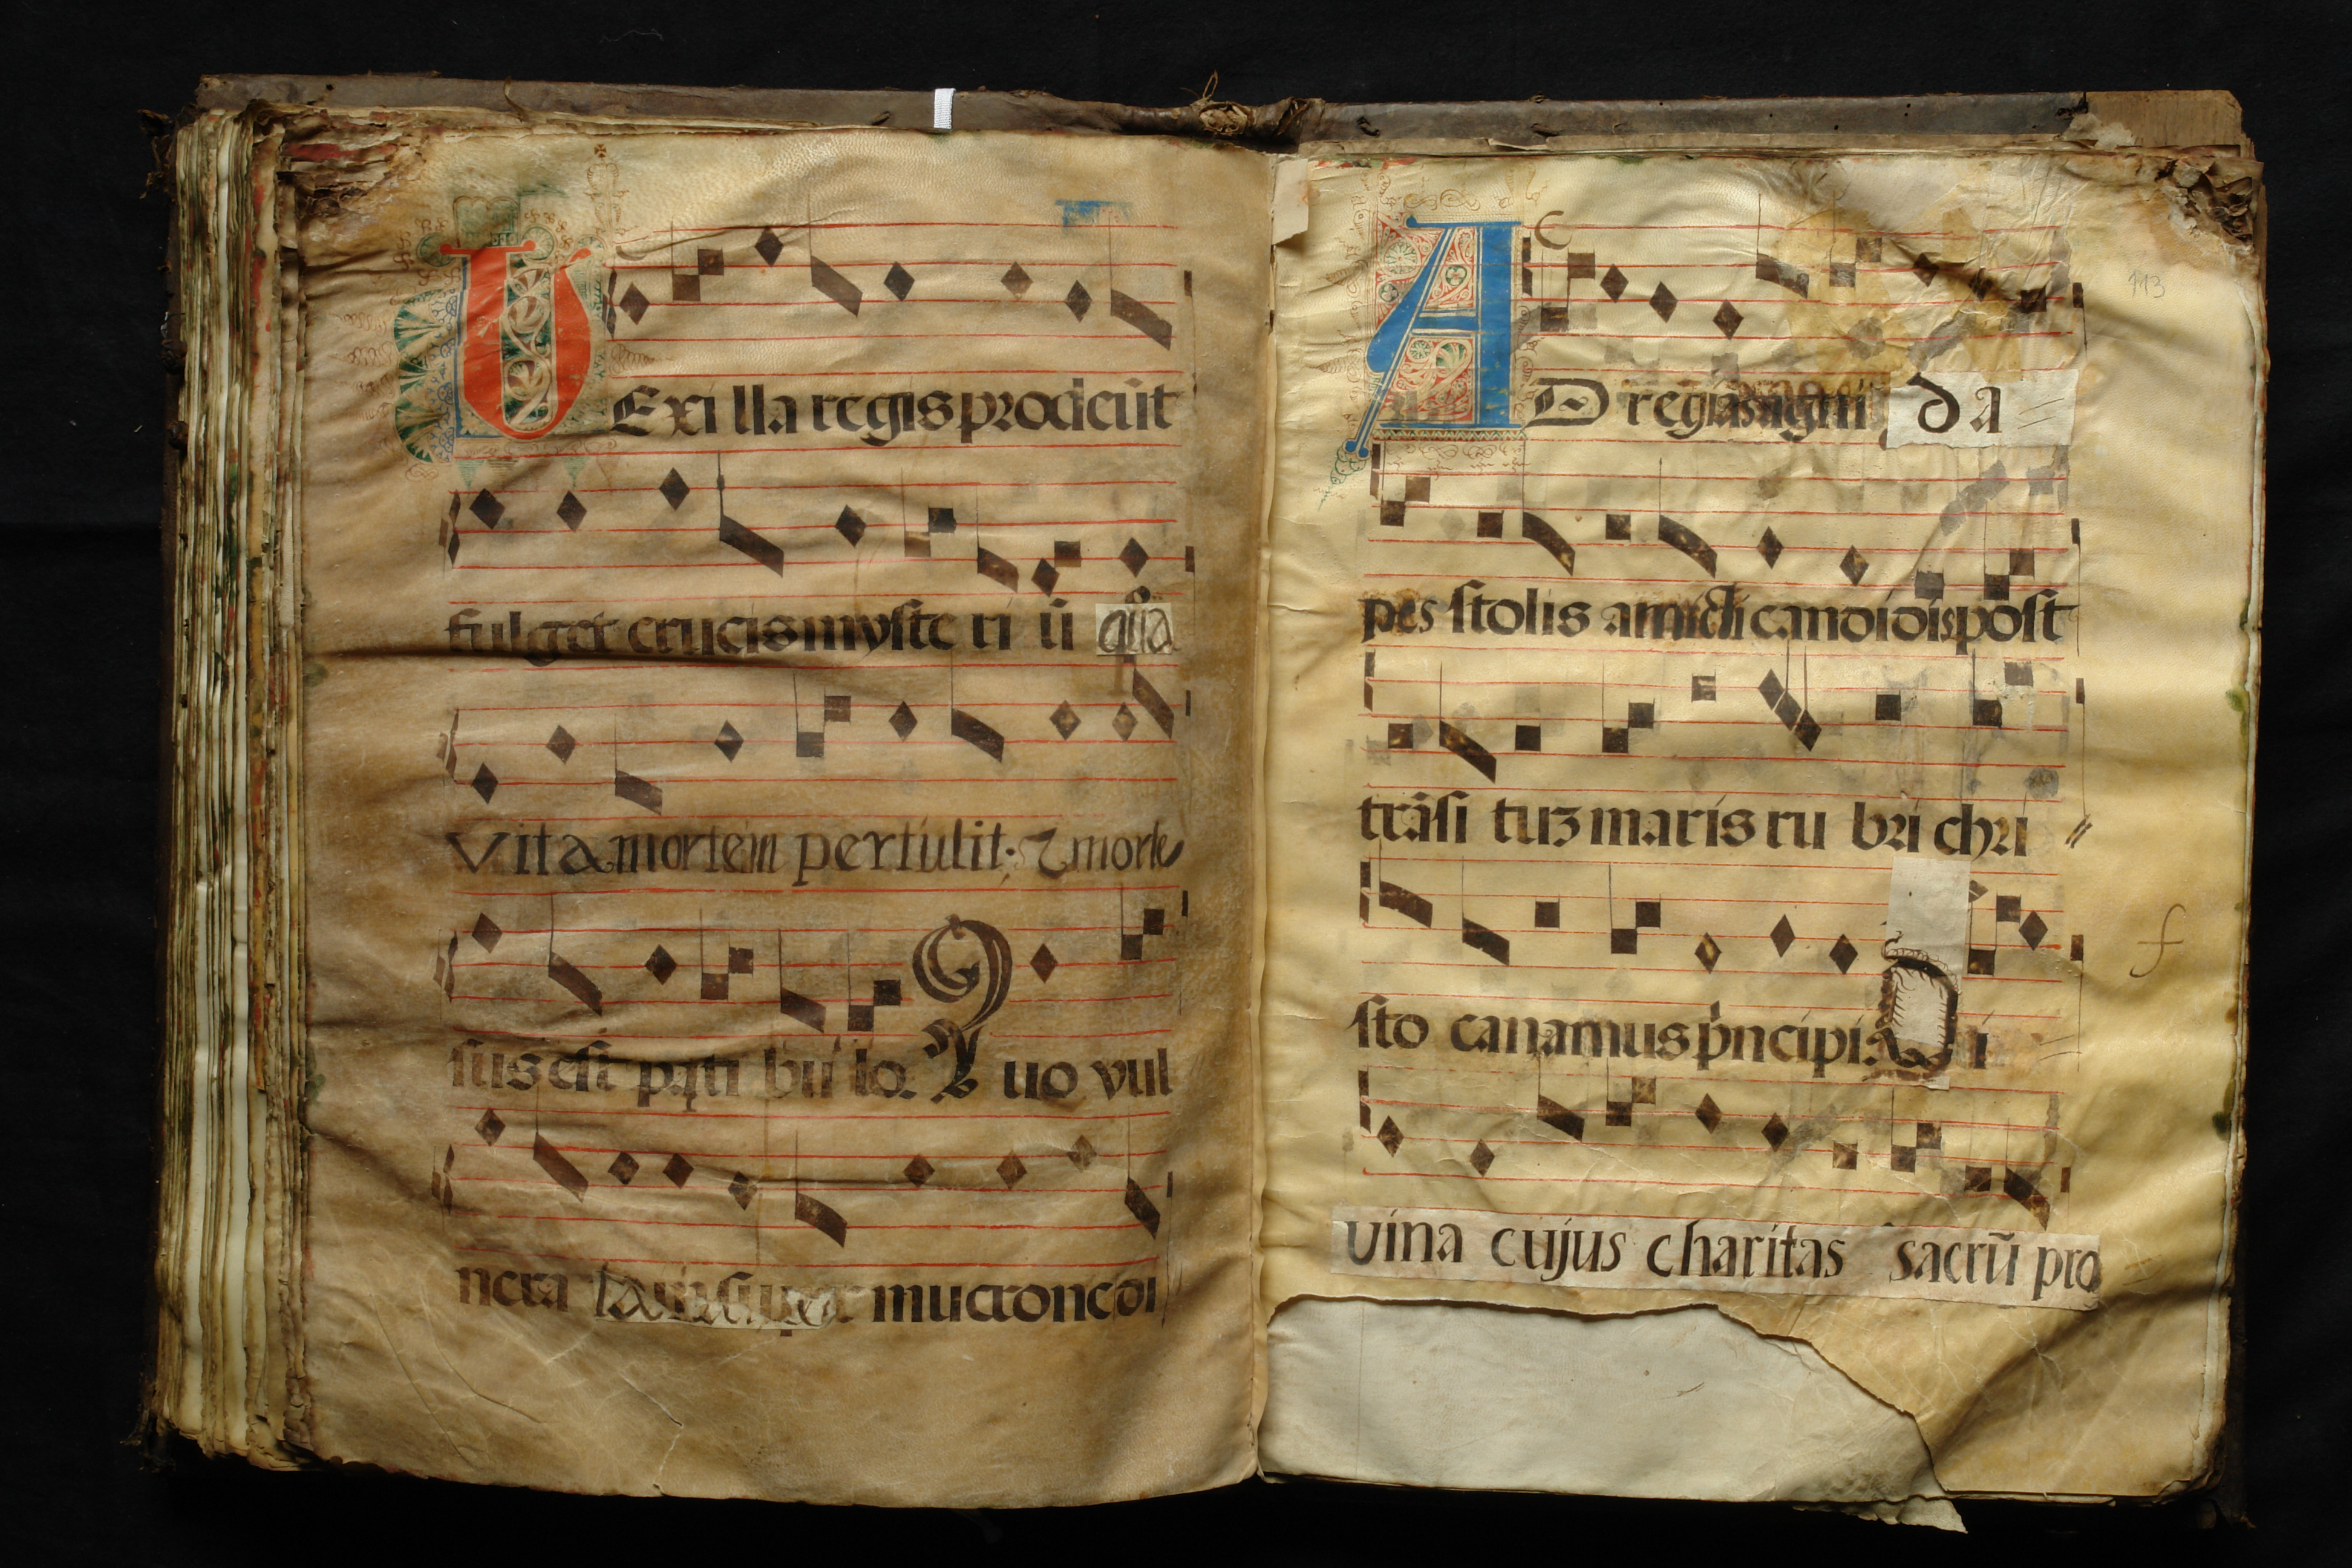 VExilla regis prodeũt
fulget crucis myste ri ũ qua
vita mortem pertulit: & morte
sus est pati bu lo. Quo vul
nera super mucrone di
C
AD regias agni da
pes stolis amicti candidis post
trãsi tuʒ maris ru bri chri
sto canamus pncipi. Di
vina cujus charitas sacrũ pro
113
f